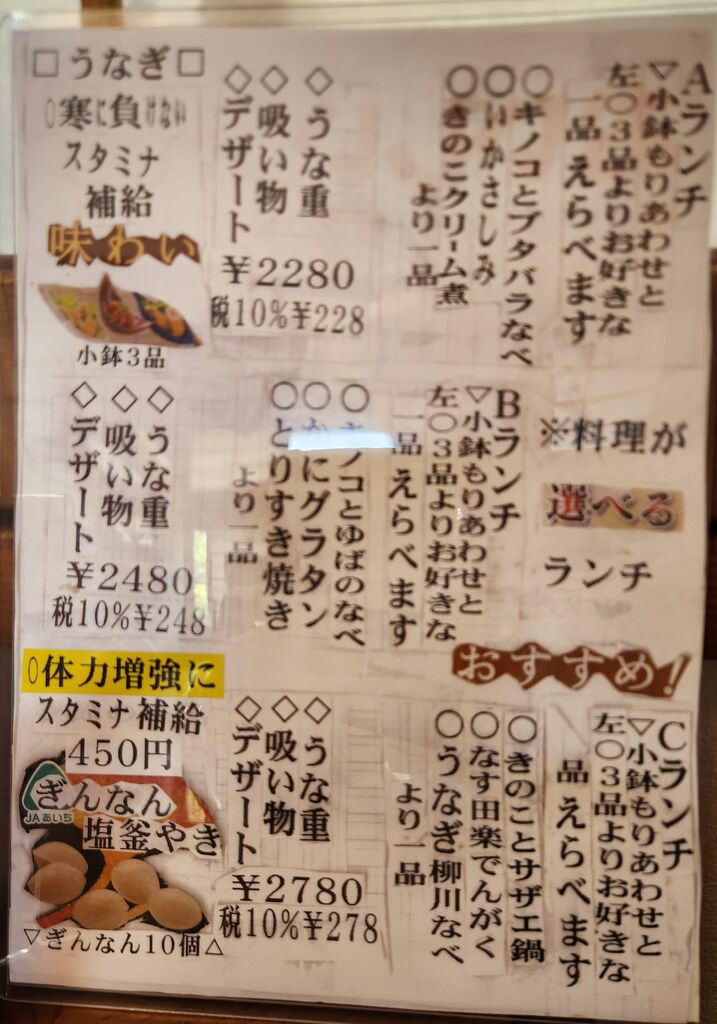 □うなぎ□
○寒に負けない
スタミナ
補給
味わい
小鉢3品
Aランチ
▽小鉢もりあわせと
左○3品よりお好きな
一品えらべます
○キノコとブタバラなべ
○いかさしみ
○きのこクリーム煮
より一品
◇うな重
◇吸い物
◇デザート
¥2280
税10%¥228
※料理が
選べる
ランチ
Bランチ
▽小鉢もりあわせと
左○3品よりお好きな
一品えらべます
○キノコとゆばのなべ
○かにグラタン
○とりすき焼き
より一品
◇うな重
◇吸い物
◇デザート
¥2480
税10%¥248
おすすめ!
Cランチ
▽小鉢もりあわせと
左○3品よりお好きな
品えらべます
○きのことサザエ鍋
○なす田楽でんがく
○うなぎ柳川なべ
より一品
◇うな重
◇吸い物
◇デザート
¥2780
税10%¥278
○体力増強に
スタミナ補給
450円
ぎんなん
JAあいち
塩釜やき
▽ぎんなん10個△